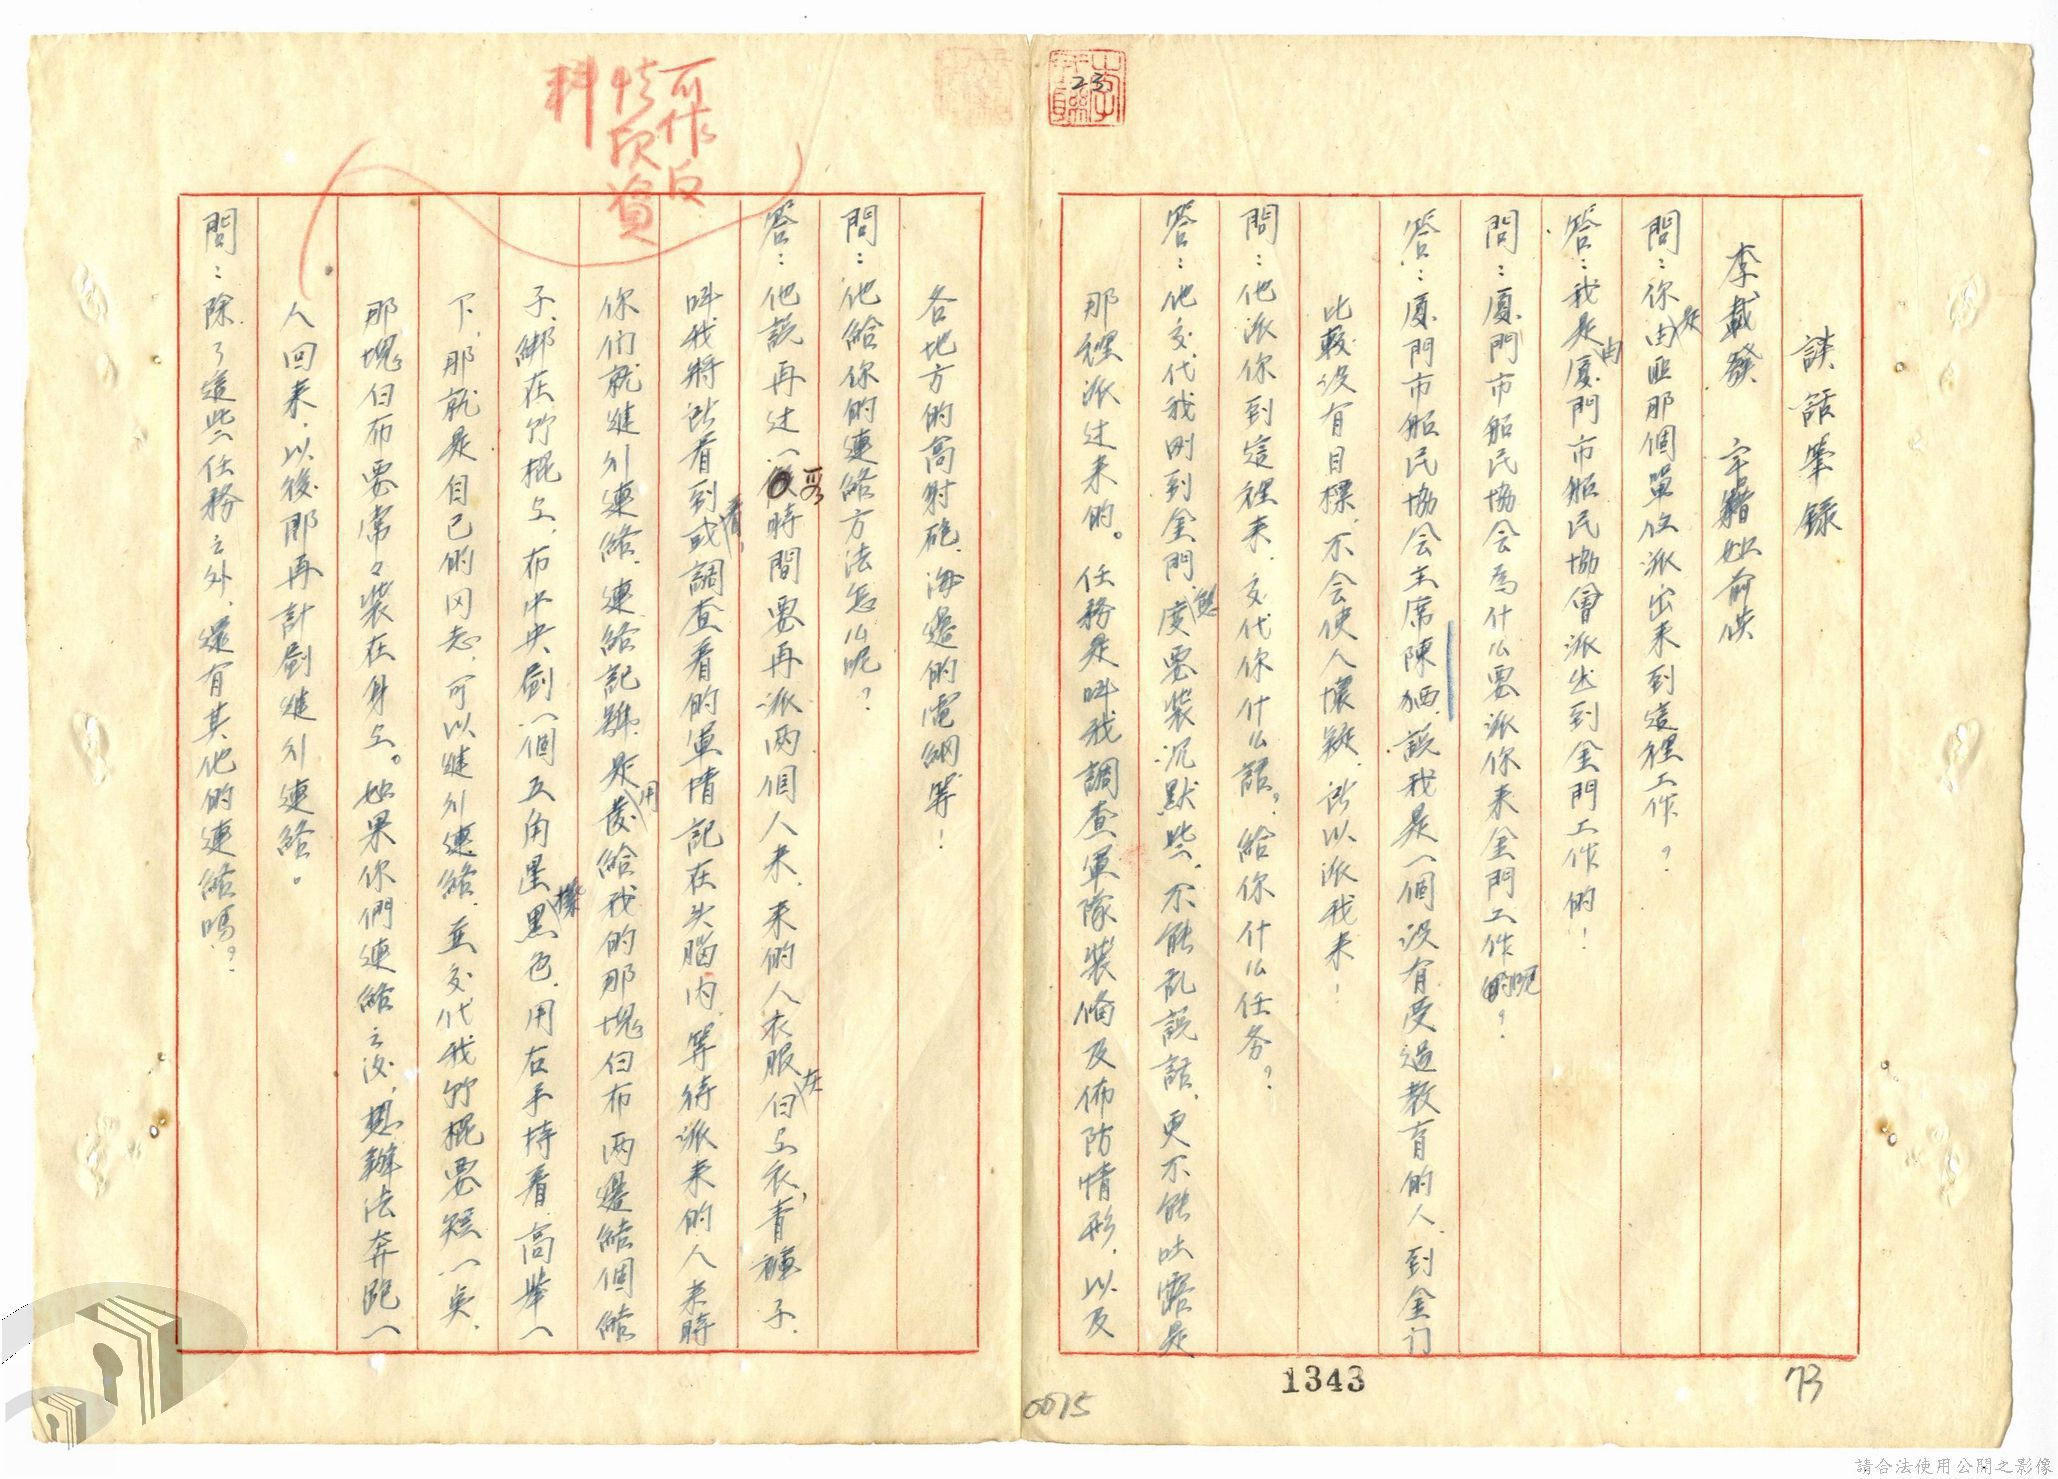 談話筆錄
李載發 字籍如前供
問:你是由匪那個單位派出來到這裡工作?
答:我是由厦門市船民協會派出到金門工作的!
問:厦門市船民協会為什么要派你来金門工作呢?
答:厦門市船民協会主席陳 說我是一個没有受過教育的人,到金门
比較没有目標,不会使人懷疑,所以派我来!
問:他派你到這裡来,交代你什么話?給你什么任务?
答:他交代我刚到金門,態度要裝沉默些,不能乱説話,更不能吐露是
那裡派过来的。任務是叫我調查軍隊裝俻及佈防情形,以及
各地方的高射砲,海邊的電網等!
問:他給你的連絡方法怎么呢?
答:他説再过一段時間要再派两個人来,来的人衣服在白上衣,青褲子,
叫我將所看到或調查看的軍情記在头腦内,等待派来的人来時
你们就進行連絡,連絡記號,是用發給我的那塊白布两邊結個結
子,綁在竹棍上,布中央劃一個五角星黑色,用右手持着高舉一
下,那就是自己的同志,可以進行連絡,並交代我竹棍要短一奌,
那塊白布要常々裝在身上。如果你們連絡之後,想辦法奔跑一
人回来,以後那再計劃進行連絡。
問:除了這些任務之外,還有其他的連絡嗎?
可作反
情欣資
料
23
1343
73
0075
請合法使用公開之影像